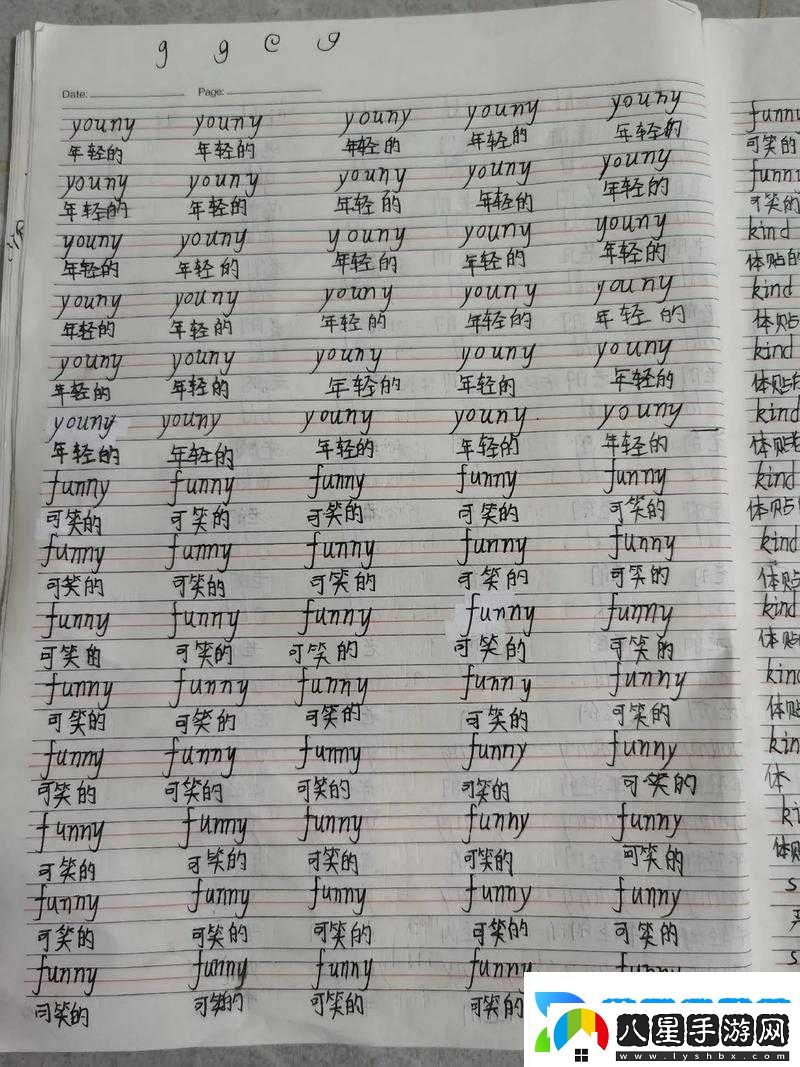 g g e g
Date: Page:
youny youny youny youny youny
年轻的 年轻的 年轻的 年轻的 年轻的
youny youny youny youny youny
年轻的 年轻的 年轻的 年轻的 年轻的
youny youny youny youny youny
年轻的 年轻的 年轻的 年轻的 年轻的
youny youny youny youny youny
年轻的 年轻的 年轻的 年轻的 年轻的
youny youny youny youny youny
年轻的 年轻的 年轻的 年轻的 年轻的
youny youny youny youny youny
年轻的 年轻的 年轻的 年轻的 年轻的
funny funny funny funny funny
可笑的 可笑的 可笑的 可笑的 可笑的
funny funny funny funny funny
可笑的 可笑的 可笑的 可笑的 可笑的
funny funny funny funny funny
可笑的 可笑的 可笑的 可笑的 可笑的
funny funny funny funny funny
可笑的 可笑的 可笑的 可笑的 可笑的
funny funny funny funny funny
可笑的 可笑的 可笑的 可笑的 可笑的
funny funny funny funny funny
可笑的 可笑的 可笑的 可笑的 可笑的
funny funny funny funny funny
可笑的 可笑的 可笑的 可笑的 可笑的
funny funny funny funny
可笑的 可笑的 可笑的 可笑的
funny
可笑的
funny
可笑的
kind
体贴的
kind
体贴
kind
体贴的
kind
体贴
kind
体贴
kind
体贴
kind
体贴
kind
体贴
kin
体
ki
体贴
s
s
八星手游网
www.lyshbx.com